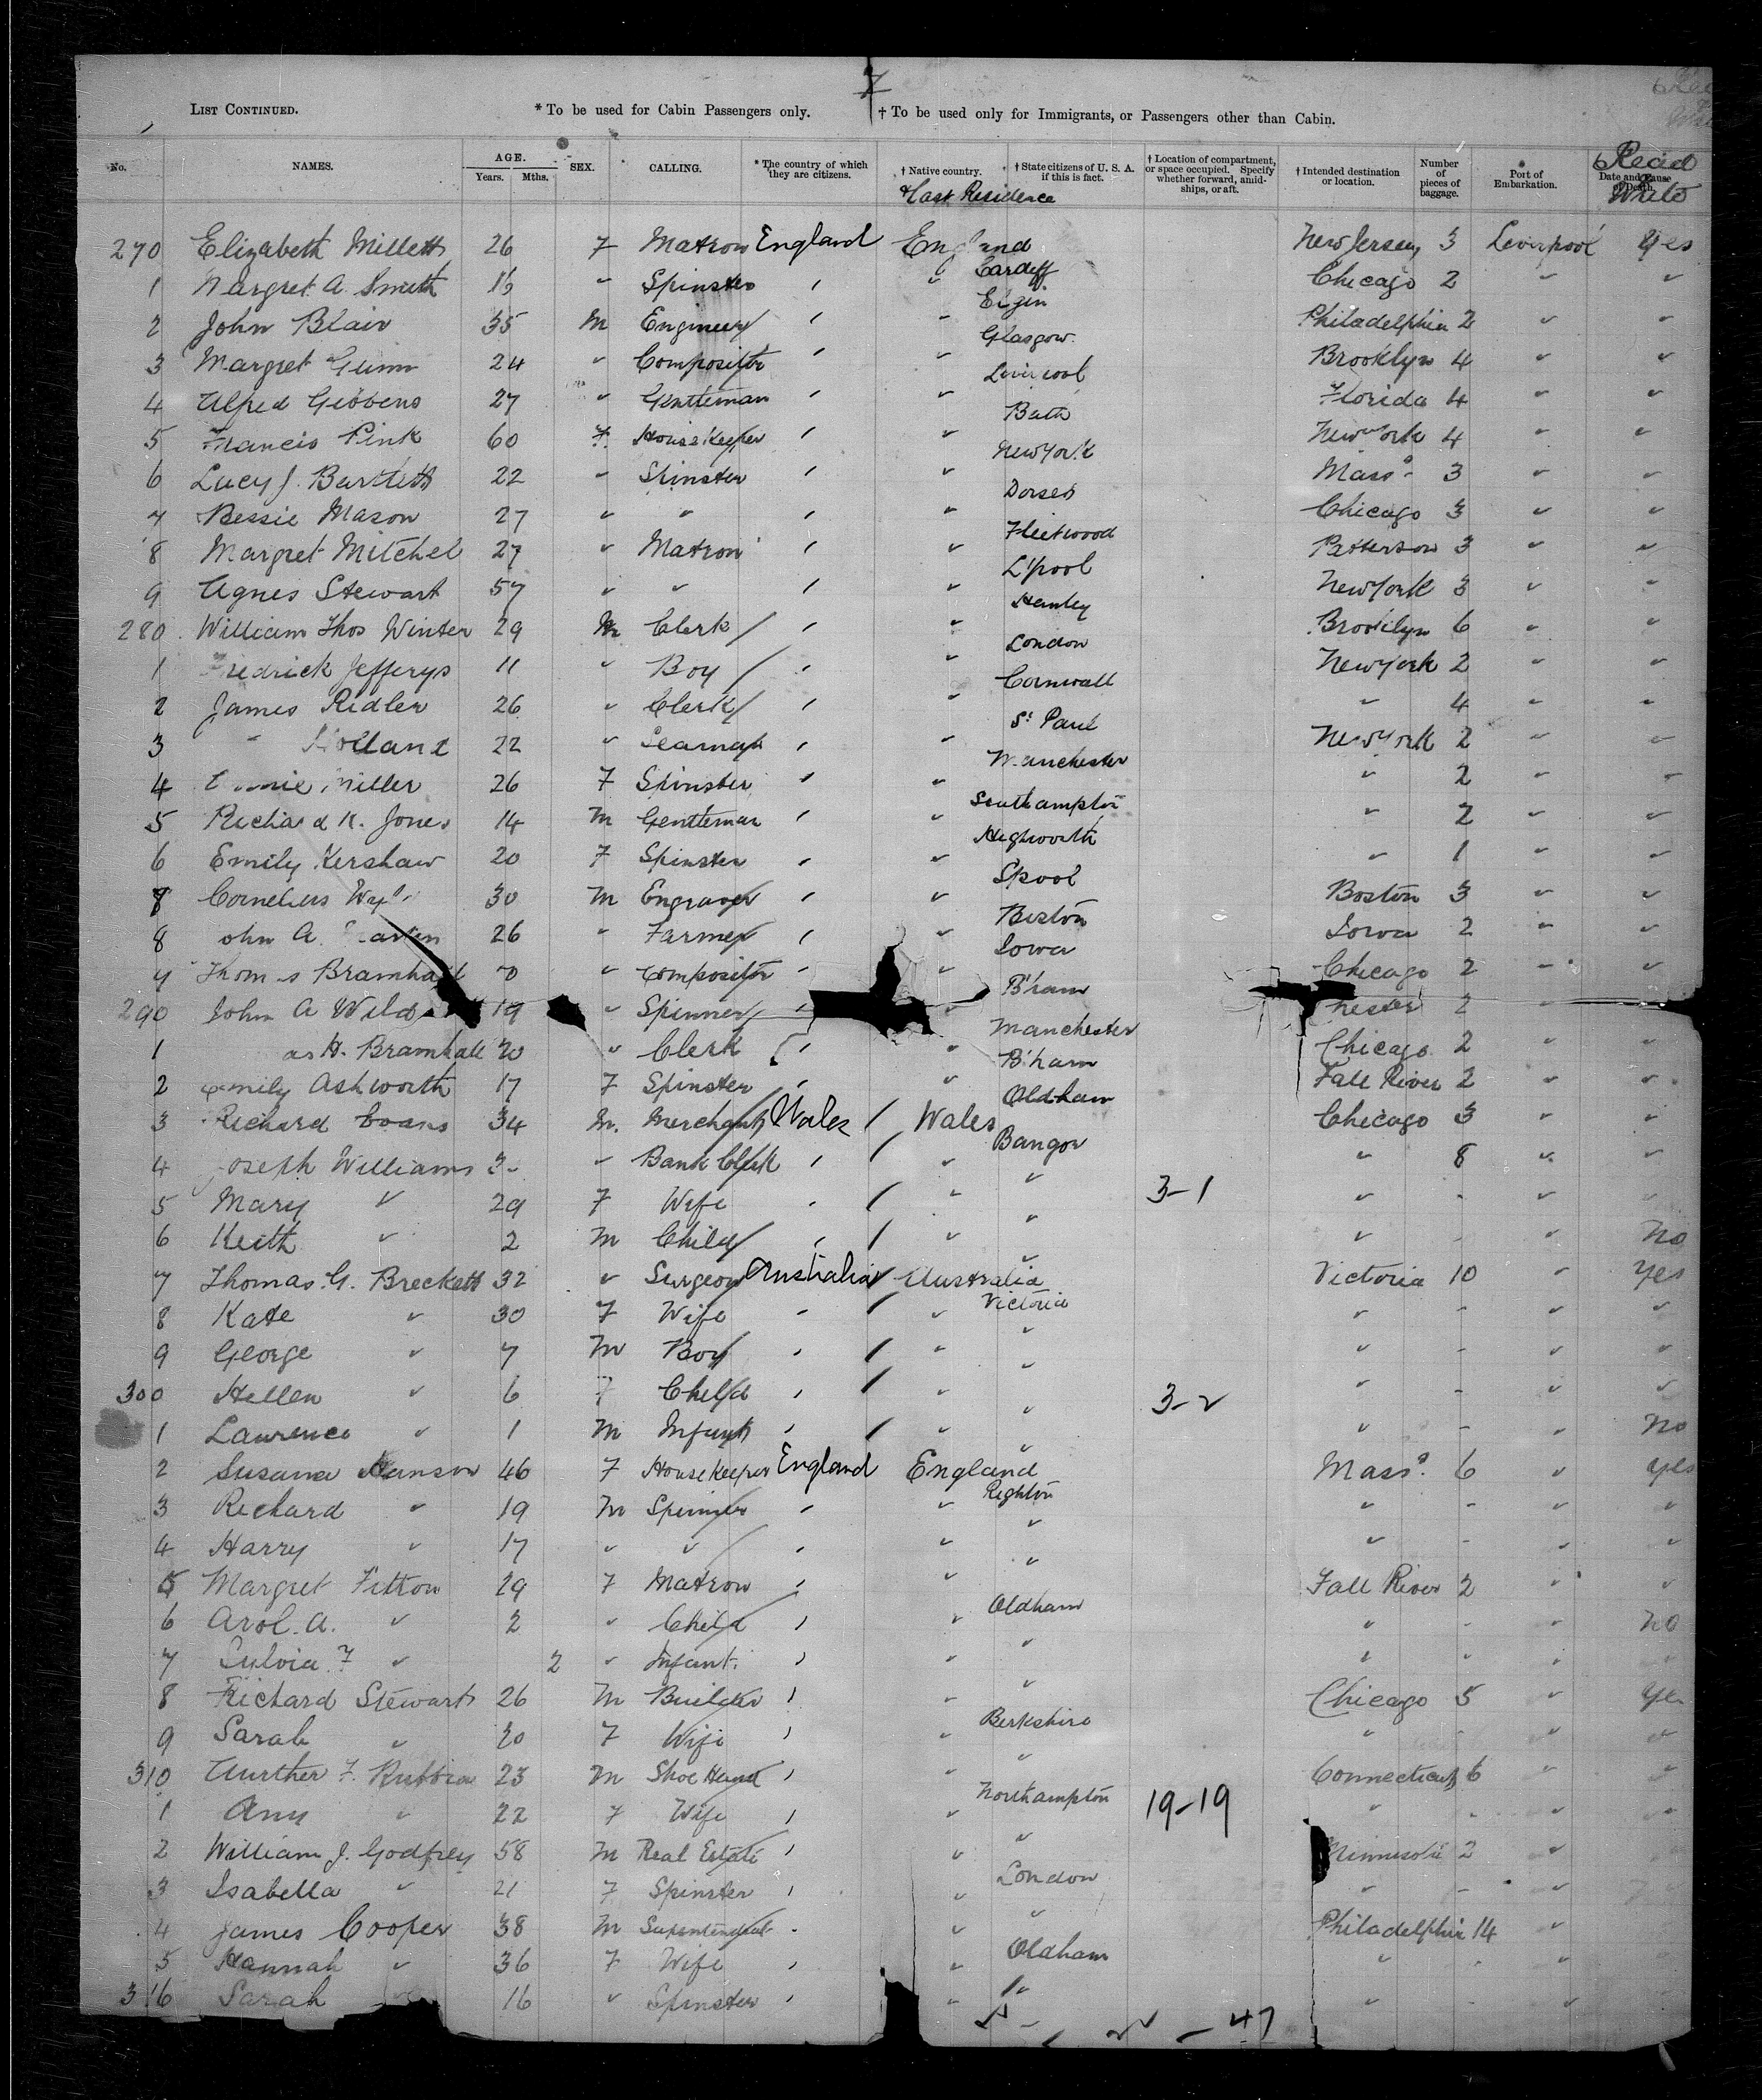 7
LIST CONTINUED. * To be used for Cabin Passengers only. † To be used only for Immigrants, or Passengers other than Cabin.
No. NAMES. AGE. Years. Mths. SEX. CALLING. * The country of which they are citizens. † Native country. † State citizens of U. S. A. if this is fact. † Location of compartment, or space occupied. Specify whether forward, amidships, or aft. † Intended destination or location. Number of pieces of baggage. * Port of Embarkation. Date and Cause of Death.
Last Residence Read Write
270 Elizabeth Millett 26 F Matron England England New Jersey 3 Liverpool Yes
Cardiff
1 Margret A. Smith " Spinster " Chicago 2 " "
Elgin
2 John Blair 35 M Engineer " " Philadelphia 2 " "
Glasgow
3 Margret Gunn 24 " Compositor " " Brooklyn 4 " "
Liverpool
4 Alfred Gibbens 27 " Gentleman " " Florida 4 " "
Bath
5 Francis Pink 60 F. Housekeeper " " New York 4 " "
New York
6 Lucy J. Bartlett 22 " Spinster " " Mass 3 " "
Dorset
7 Bessie Mason 27 " " " " Chicago 3 " "
Fleetwood
8 Margret Mitchel 27 " Matron " " Patterson 3 " "
L'pool
9 Agnes Stewart 57 " " " " New York 3 " "
Hanley
280 William Thos Winter 29 M Clerk " " Brooklyn 6 " "
London
1 Fredrick Jefferys 11 " Boy " " New York 2 " "
Cornwall
2 James Ridler 26 " Clerk " " " 4 " "
St Paul
3 " Holland 22 " " " New York 2 " "
Manchester
4 Miller 26 F Spinster " " " 2 " "
Southampton
5 Richard K. Jones 14 M Gentleman " " " 2 " "
Highworth
6 Emily Kershaw 20 F Spinster " " " 1 " "
8 Cornelius 30 M Engraver " " Boston 3 " "
Boston
8 John A. 26 " Farmer " " Iowa 2 " "
Iowa
9 Thomas Bramhall " Compositor " " Chicago 2 " "
B'ham
290 John A Wild 19 " Spinner " 2 " "
Manchester
1 H. Bramhall 20 " Clerk " " Chicago 2 " "
B'ham
2 Emily Ashworth 17 F Spinster " " Fall River 2 " "
Oldham
3 Richard Evans 34 M. Merchant Wales Wales Chicago 3 " "
Bangor
4 Joseph Williams " Bank Clerk " " " 8 " "
"
5 Mary " 29 F Wife " " 3-1 " - "
"
6 Keith " 2 M Child " " " - " No
"
7 Thomas G. Breckett 32 " Surgeon Australia Australia Victoria 10 " Yes
Victoria
8 Kate " 30 F Wife " " " - " "
"
9 George " 7 M Boy " " " - " "
"
300 Hellen " 6 F Child " " 3-2 " - " "
"
1 Laurence " 1 M Infant " " " - " No
"
2 Susana Hanson 46 F Housekeeper England England Mass. 6 " Yes
Righton
3 Richard " 19 M Spinner " " " - " "
"
4 Harry " 17 " " " " " - " "
"
5 Margret Fitton 29 F Matron " " Fall River 2 " "
Oldham
6 Arol. A. " 2 " Child " " " - " No
"
7 Sylvia F " 2 " Infant. " " " - " "
"
8 Richard Stewart 26 M Builder " " Chicago 5 " Yes
Berkshire
9 Sarah " 20 F Wife " " " - " "
"
310 Aurther F. 23 M Shoe Hand " " Connecticut 6 " "
Northampton
1 Any " 22 F Wife " " 19-19 " - " "
"
2 William J. Godfrey 58 M Real Estate " " Minnesota 2 "
London
3 Isabella " 21 F Spinster " " " - "
"
4 James Cooper 38 M Superintendent " " Philadelphia 14 "
Oldham
5 Hannah " 36 F Wife " " " - "
"
316 Sarah " 16 " Spinster " " " - "
- 47